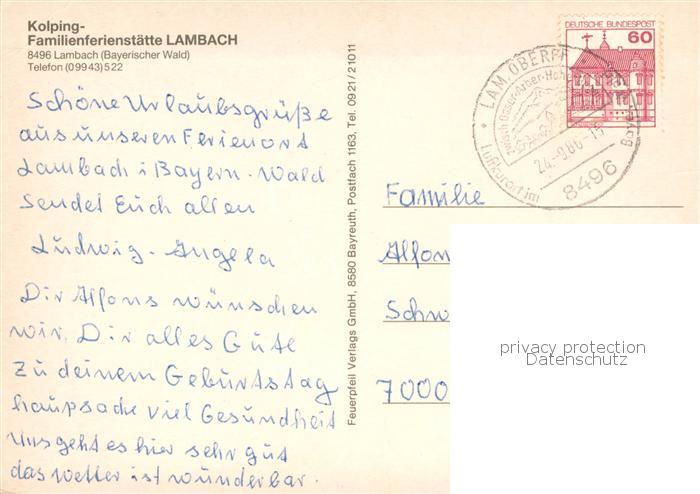 Kolping-
Familienferienstätte LAMBACH
8496 Lambach (Bayerischer Wald)
Telefon (09943) 522
Schöne Urlaubsgrüße
aus unseren Ferienort
Lambach i Bayern. Wald
sendet Euch allen
Ludwig - Angela
Dir Alfons wünschen
wir Dir alles Gute
zu deinem Geburtstag
haupsache viel Gesundheit
Uns geht es hier sehr gut
das Wetter ist wunderbar.
Feuerpfeil Verlags GmbH, 8580 Bayreuth, Postfach 1163, Tel. 0921/21011
DEUTSCHE BUNDESPOST
60
LAM, OBERPF
Luftkurort im
Bayer
24.-9.86.-16
8496
Familie
Alfon
Schw
7000
privacy protection
Datenschutz